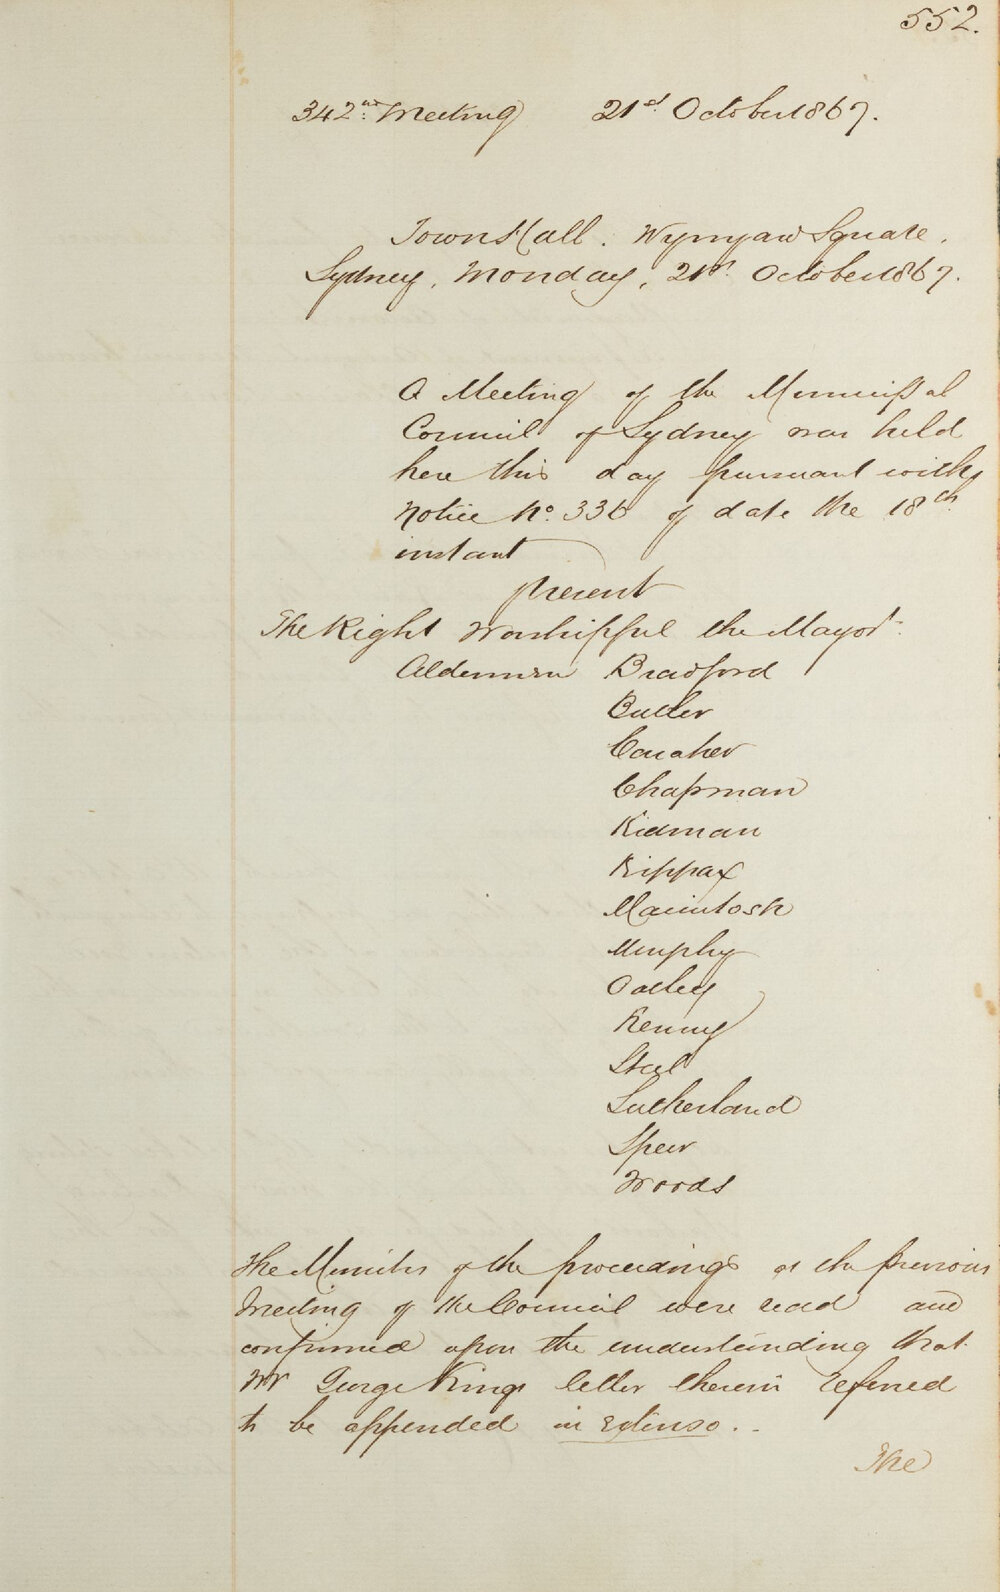 552.
342nd Meeting 21st October 1867.
Town Hall. Wynyard Square.
Sydney, Monday, 21st October 1867.
A Meeting of the Municipal
Council of Sydney was held
here this day pursuant with
Notice No. 336 of date the 18th
instant
present
The Right Worshipful the Mayor
Aldermen Bradford
Butler
Caraher
Chapman
Kidman
Kippax
Macintosh
Murphy
Oatley
Renny
Steel
Sutherland
Speer
Woods
The Minutes of the proceedings at the previous
Meeting of the Council were read and
confirmed upon the understanding that
Mr George Kings letter therein referred
to be appended in Extenso.
The